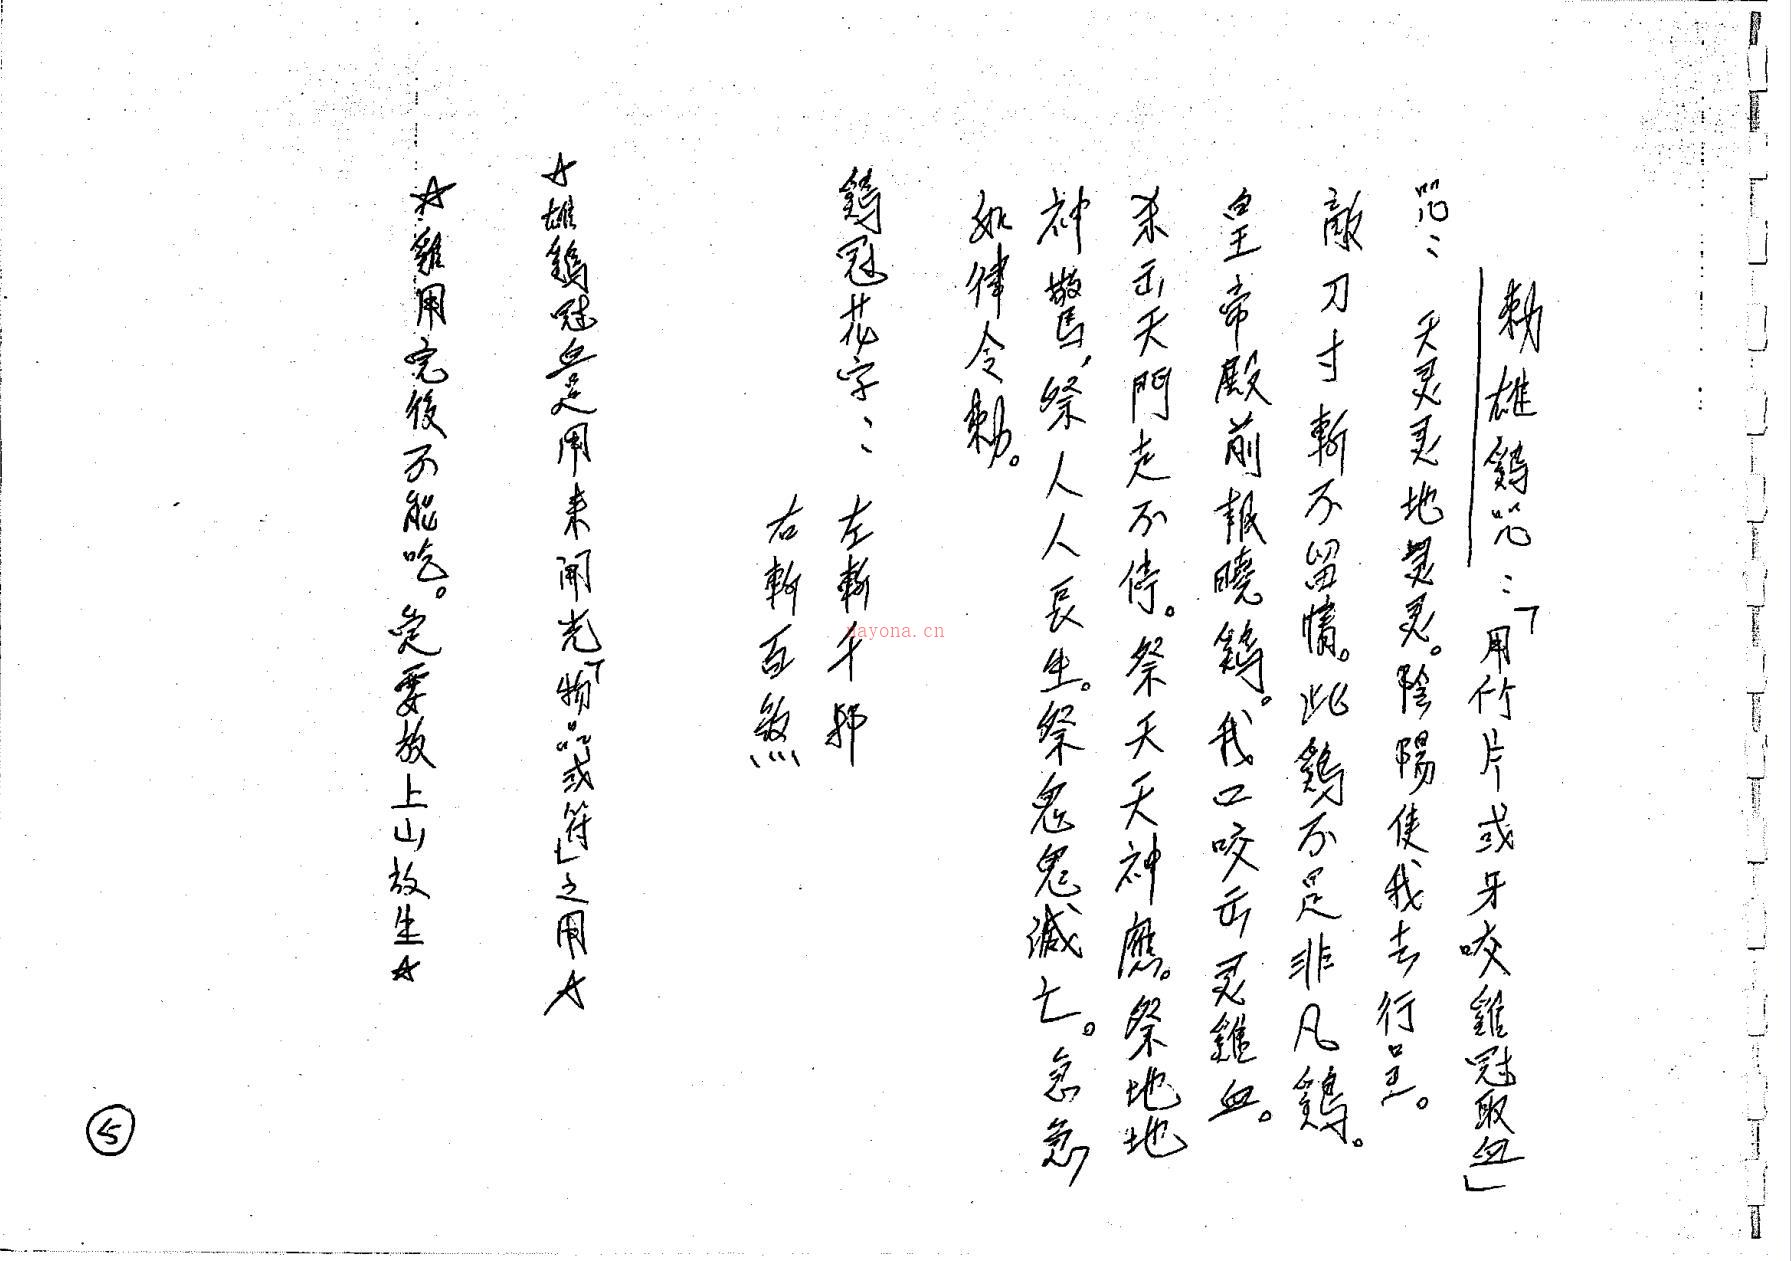 勅雄鷄咒：「用竹片或牙咬雞冠取血」
咒：天灵灵地灵灵。陰陽使我去行罡。
敵刀寸斬不留情。此鷄不是非凡鷄。
皇帝殿前報曉鷄。我口咬出灵雞血。
杀出天門走不停。祭天天神應。祭地地
神驚，祭人人長生。祭鬼鬼滅亡。急急
如律令勅。
鷄冠花字：左斬千邪
右斬百煞
☆雄鷄冠血是用来開光「物品或符」之用☆
☆雞用完後不能吃。定要放上山放生☆
5
nayona.cn